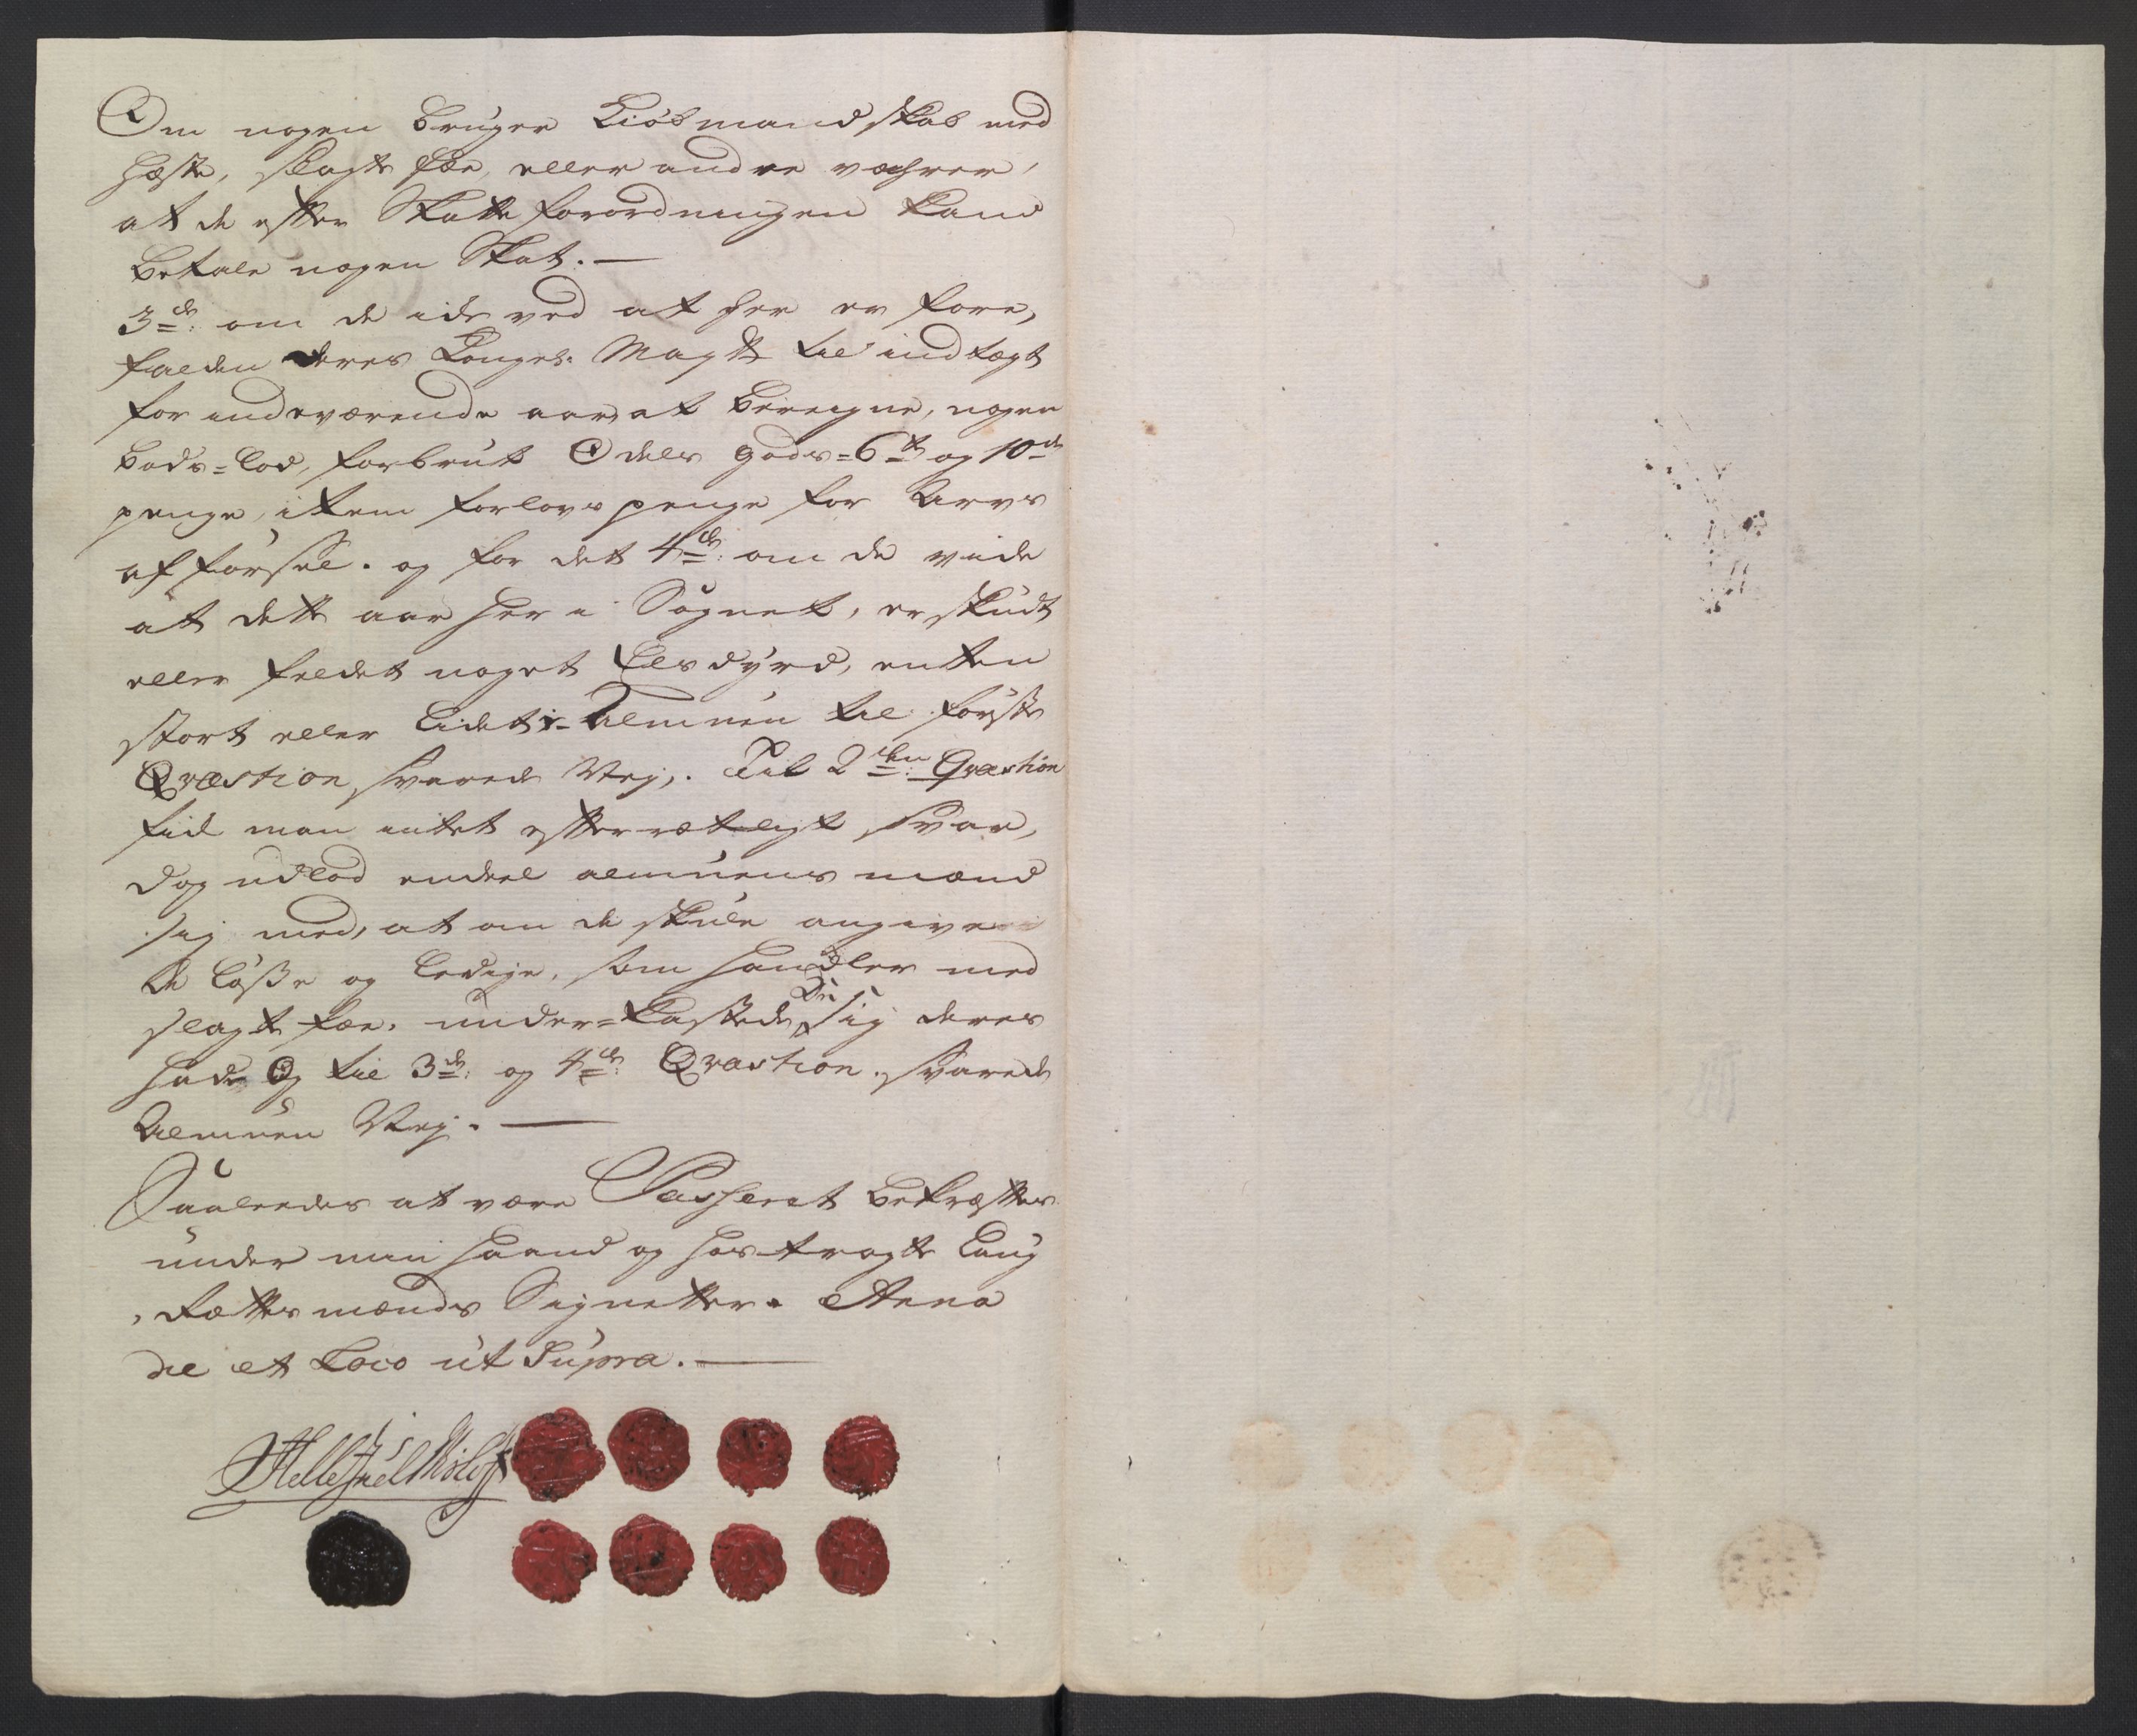 Om nogen bruger Kiøbmandskab med
Hæste, slagte fæe, eller andre vahrer,
at de efter Skatte forordningen kand
betale nogen Skat. —
3de: om de icke ved at her er fore,
falden deres Kongel: Mayts til indtægt
for indeværende aar at bereigne, nogen
bøds-lod, forbrut Odels gods = 6te og 10de
penge, item forlovs penge for Arvs
afførsel. og for det 4de: om de vide
at dette aar her i Sognet, er skudt
eller feldet noget Elsdyrd, enten
stort eller lidet. Almuen til første
Qvæstion, svarede Nej,. Til 2den: Qvæstion
fik man intet efterretligt svar,
dog udlod endeel almuens mænd
sig med, at om de skule angive
de løsse og ledige, som handler med
slagte fæe, under=kastede De sig deres
had. Og til 3de: og 4de: Qvæstion. svarede
Almuen Nej. —
Saaledes at være Passeret bekræfter
under min haand og hostrøgte Laug
,rettes mænds Signetter. Anno
die et Loco ut Supra. —